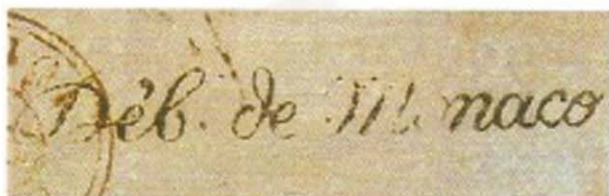 Déb. de Monaco